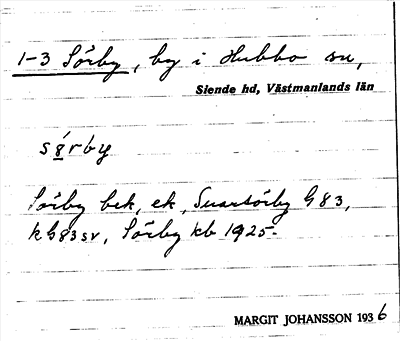 1-3 Sörby, by i Hubbo sn,
Siende hd, Västmanlands län
Sörby bek, ek, Svartsörby G83,
k G83 sv, Sörby kb 1925.
MARGIT JOHANSSON 1936